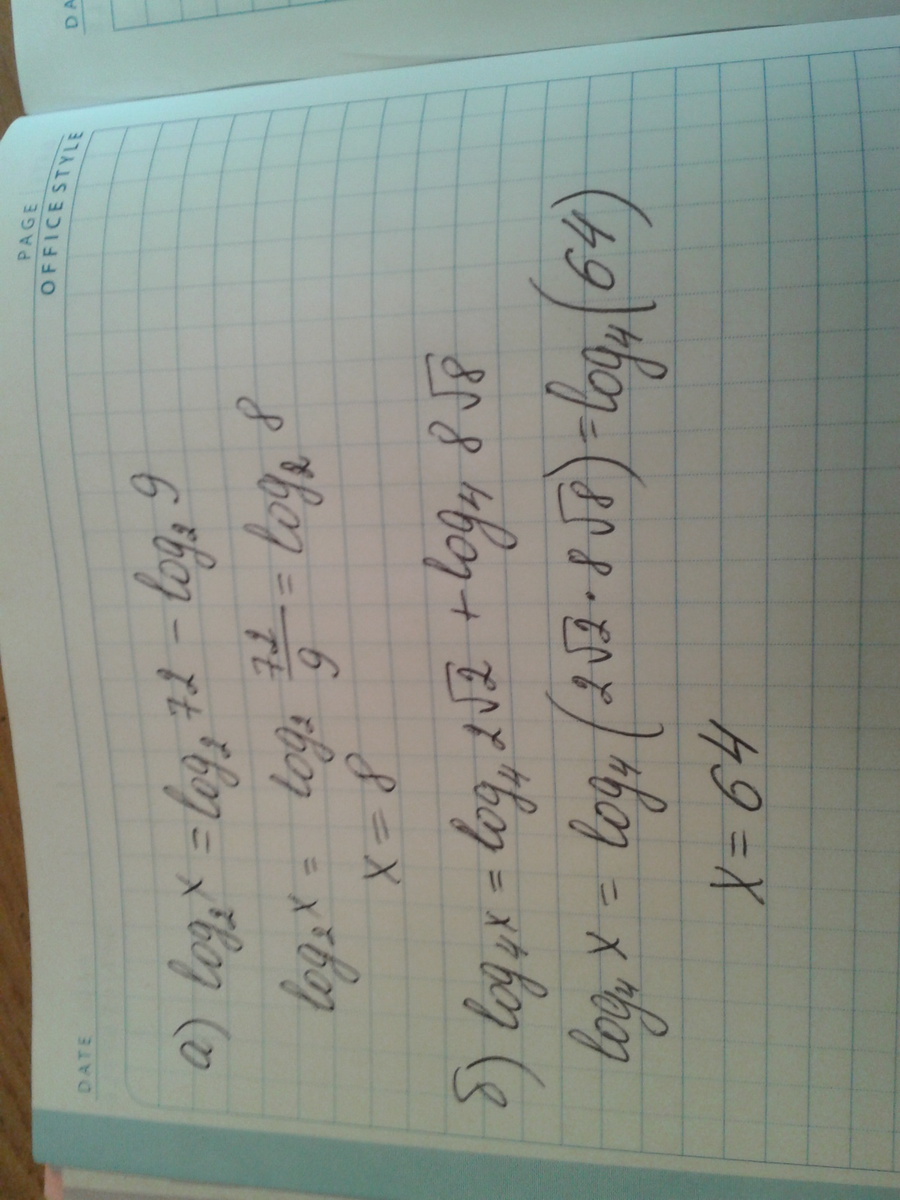 DATE
PAGE
OFFICE STYLE
а) log₂x = log₂ 72 - log₂ 9
log₂x = log₂ 72/9 = log₂ 8
x = 8
б) log₄x = log₄ 2√2 + log₄ 8√8
log₄ x = log₄ (2√2 · 8√8) = log₄ (64)
x = 64